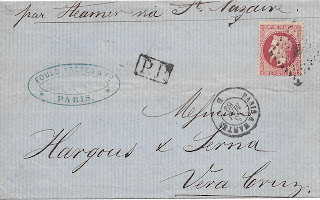 par Steamer via St. Nazaire
P.D.
FOULD
PARIS
PARIS A NANTES
Messieurs
Hargous & Serna
Vera Cruz